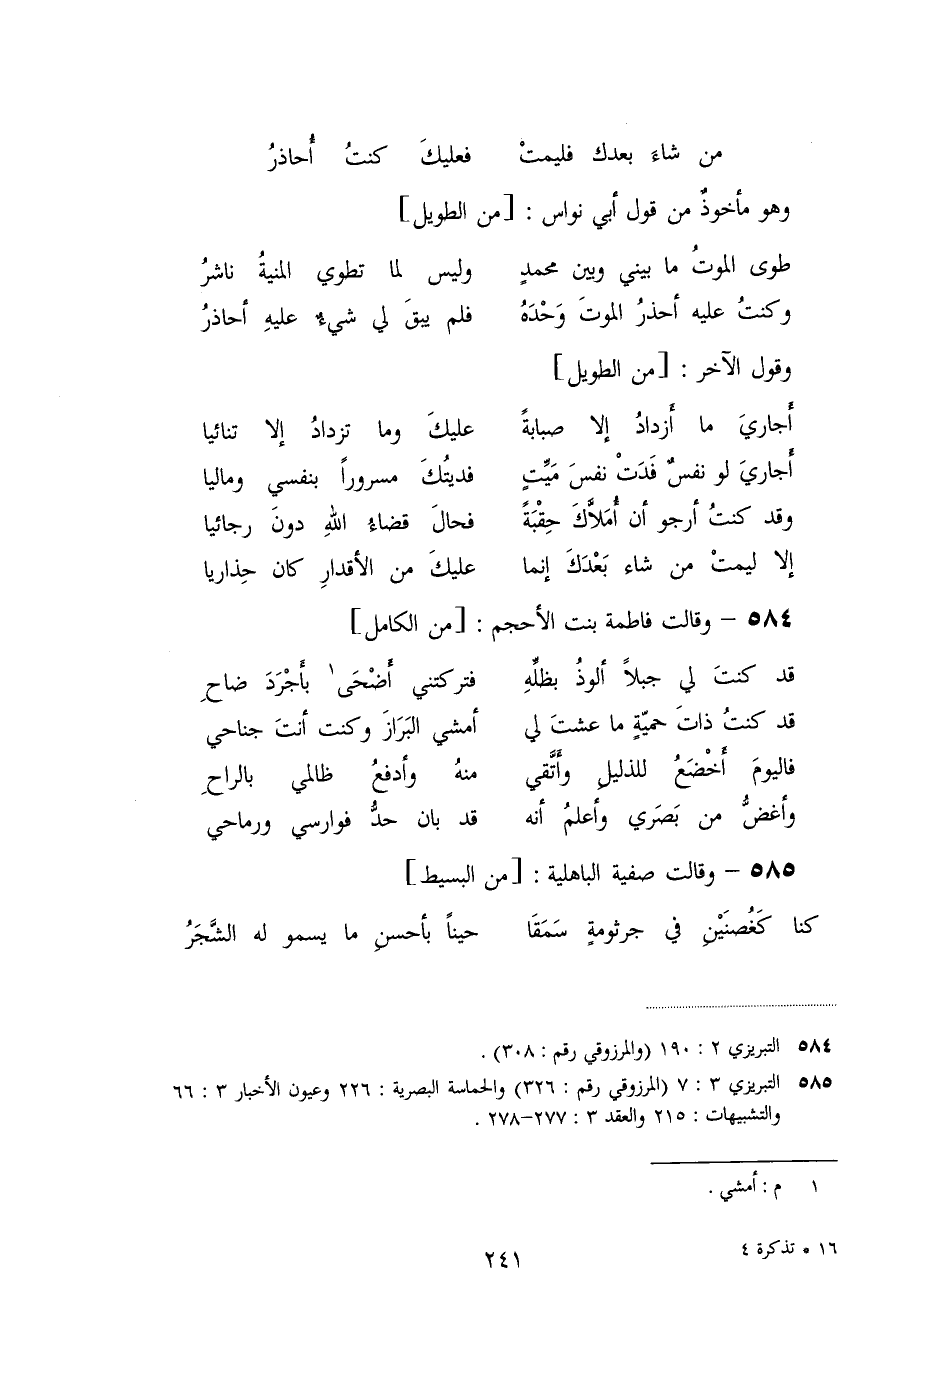 من شاءَ بعدك فليمتْ فعليكَ كنتُ أُحاذرُ
وهو مأخوذٌ من قول أبي نواس : [من الطويل]
طوى الموتُ ما بيني وبين محمدٍ وليس لما تطوي المنيةُ ناشرُ
وكنتُ عليه أحذرُ الموتَ وَحْدَهُ فلم يبقَ لي شيءٌ عليهِ أحاذرُ
وقول الآخر : [من الطويل]
أَجاريَ ما أَزدادُ إلا صبابةً عليكَ وما تزدادُ إلا تنائيا
أَجاريَ لو نفسٌ فَدَتْ نفسَ مَيِّتٍ فديتُكَ مسروراً بنفسي وماليا
وقد كنتُ أرجو أن أُمَلاَّكَ حِقْبَةً فحالَ قضاءُ اللهِ دونَ رجائيا
إلا ليمتْ من شاء بَعْدَكَ إنما عليكَ من الأقدارِ كان حِذاريا
٥٨٤ – وقالت فاطمة بنت الأحجم : [من الكامل]
قد كنتَ لي جبلاً ألوذُ بظلِّهِ فتركتني أَضْحَى١ بأَجْرَدَ ضاحِ
قد كنتُ ذاتَ حميّةٍ ما عشتَ لي أمشي البَرَازَ وكنت أنتَ جناحي
فاليومَ أَخْضَعُ للذليلِ وأَتَّقي منهُ وأدفعُ ظالمي بالراحِ
وأغضُّ من بَصَري وأعلمُ أنه قد بان حدُّ فوارسي ورماحي
٥٨٥ – وقالت صفية الباهلية : [من البسيط]
كنا كَغُصنَيْنِ في جرثومةٍ سَمَقَا حيناً بأحسنِ ما يسمو له الشَّجَرُ
٥٨٤ التبريزي ٢ : ١٩٠ (والمرزوقي رقم : ٣٠٨) .
٥٨٥ التبريزي ٣ : ٧ (المرزوقي رقم : ٣٢٦) والحماسة البصرية : ٢٢٦ وعيون الأخبار ٣ : ٦٦
والتشبيهات : ٢١٥ والعقد ٣ : ٢٧٧–٢٧٨ .
١ م : أمشي .
١٦ * تذكرة ٤
٢٤١